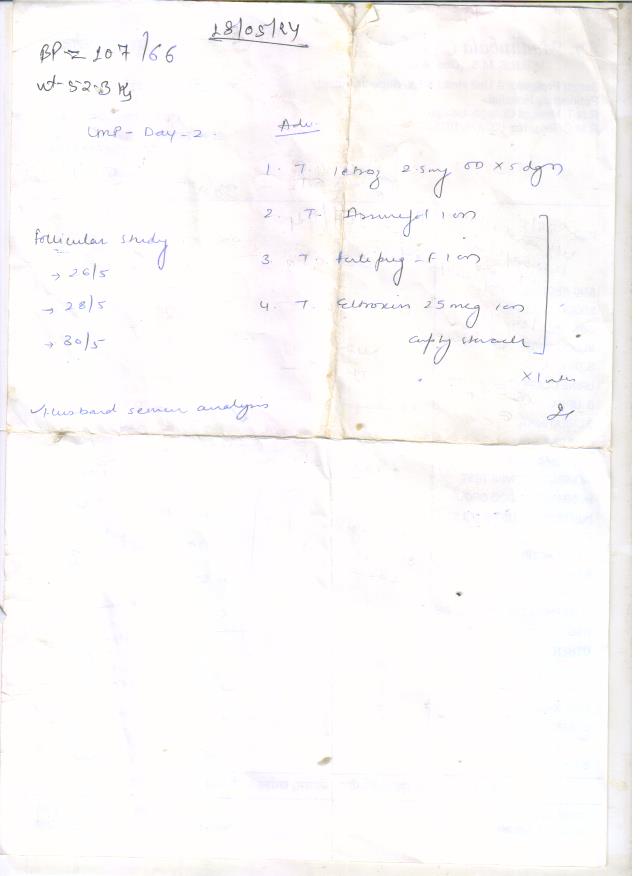 18/05/24
BP = 107/66
wt - 52.3 kg
LMP - Day - 2.
Adv.
1. T. letroz 2.5mg OD x 5 days
2. T. 1 OD
Follicular study
3. T. - F 1 OD
→ 26/5
→ 28/5
4. T. Eltroxin 25 mcg 1 OD
→ 30/5
empty stomach
x 1 mth
✓ Husband semen analysis